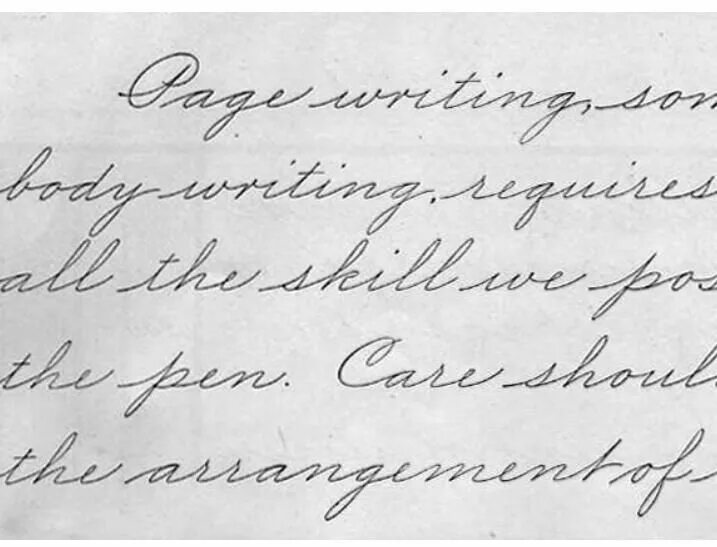 Page writing, som
body writing, requires
all the skill we pos
the pen. Care shoul
the arrangement of